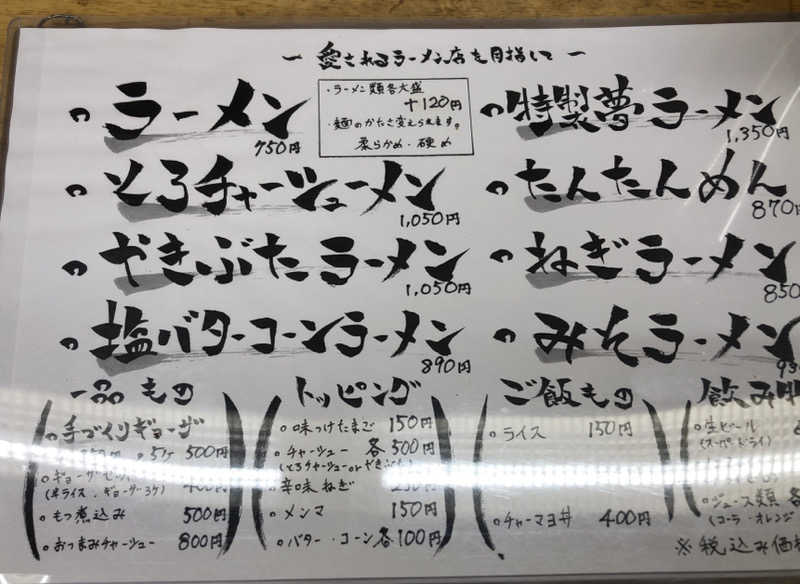 ー 愛されるラーメン店を目指して ー
ラーメン 750円
・ラーメン類各大盛
+120円
・麺のかたさ変えられます。
柔らかめ・硬め
特製夢ラーメン 1,350円
とろチャーシューメン 1,050円
たんたんめん 870円
やきぶたラーメン 1,050円
ねぎラーメン 850
塩バターコーンラーメン 890円
みそラーメン
一品もの
手づくりギョーザ
5ケ 500円
(半ライス・ギョーザ3ケ)
もつ煮込み 500円
おつまみチャーシュー 800円
トッピング
味つけたまご 150円
チャーシュー 各500円
(とろチャーシューor
辛味ねぎ
メンマ 150円
バター・コーン各100円
ご飯もの
ライス 150円
チャーマヨ丼 400円
飲み
生ビール
(スーパードライ)
ジュース類 各
(コーラ・オレンジ
※税込み価